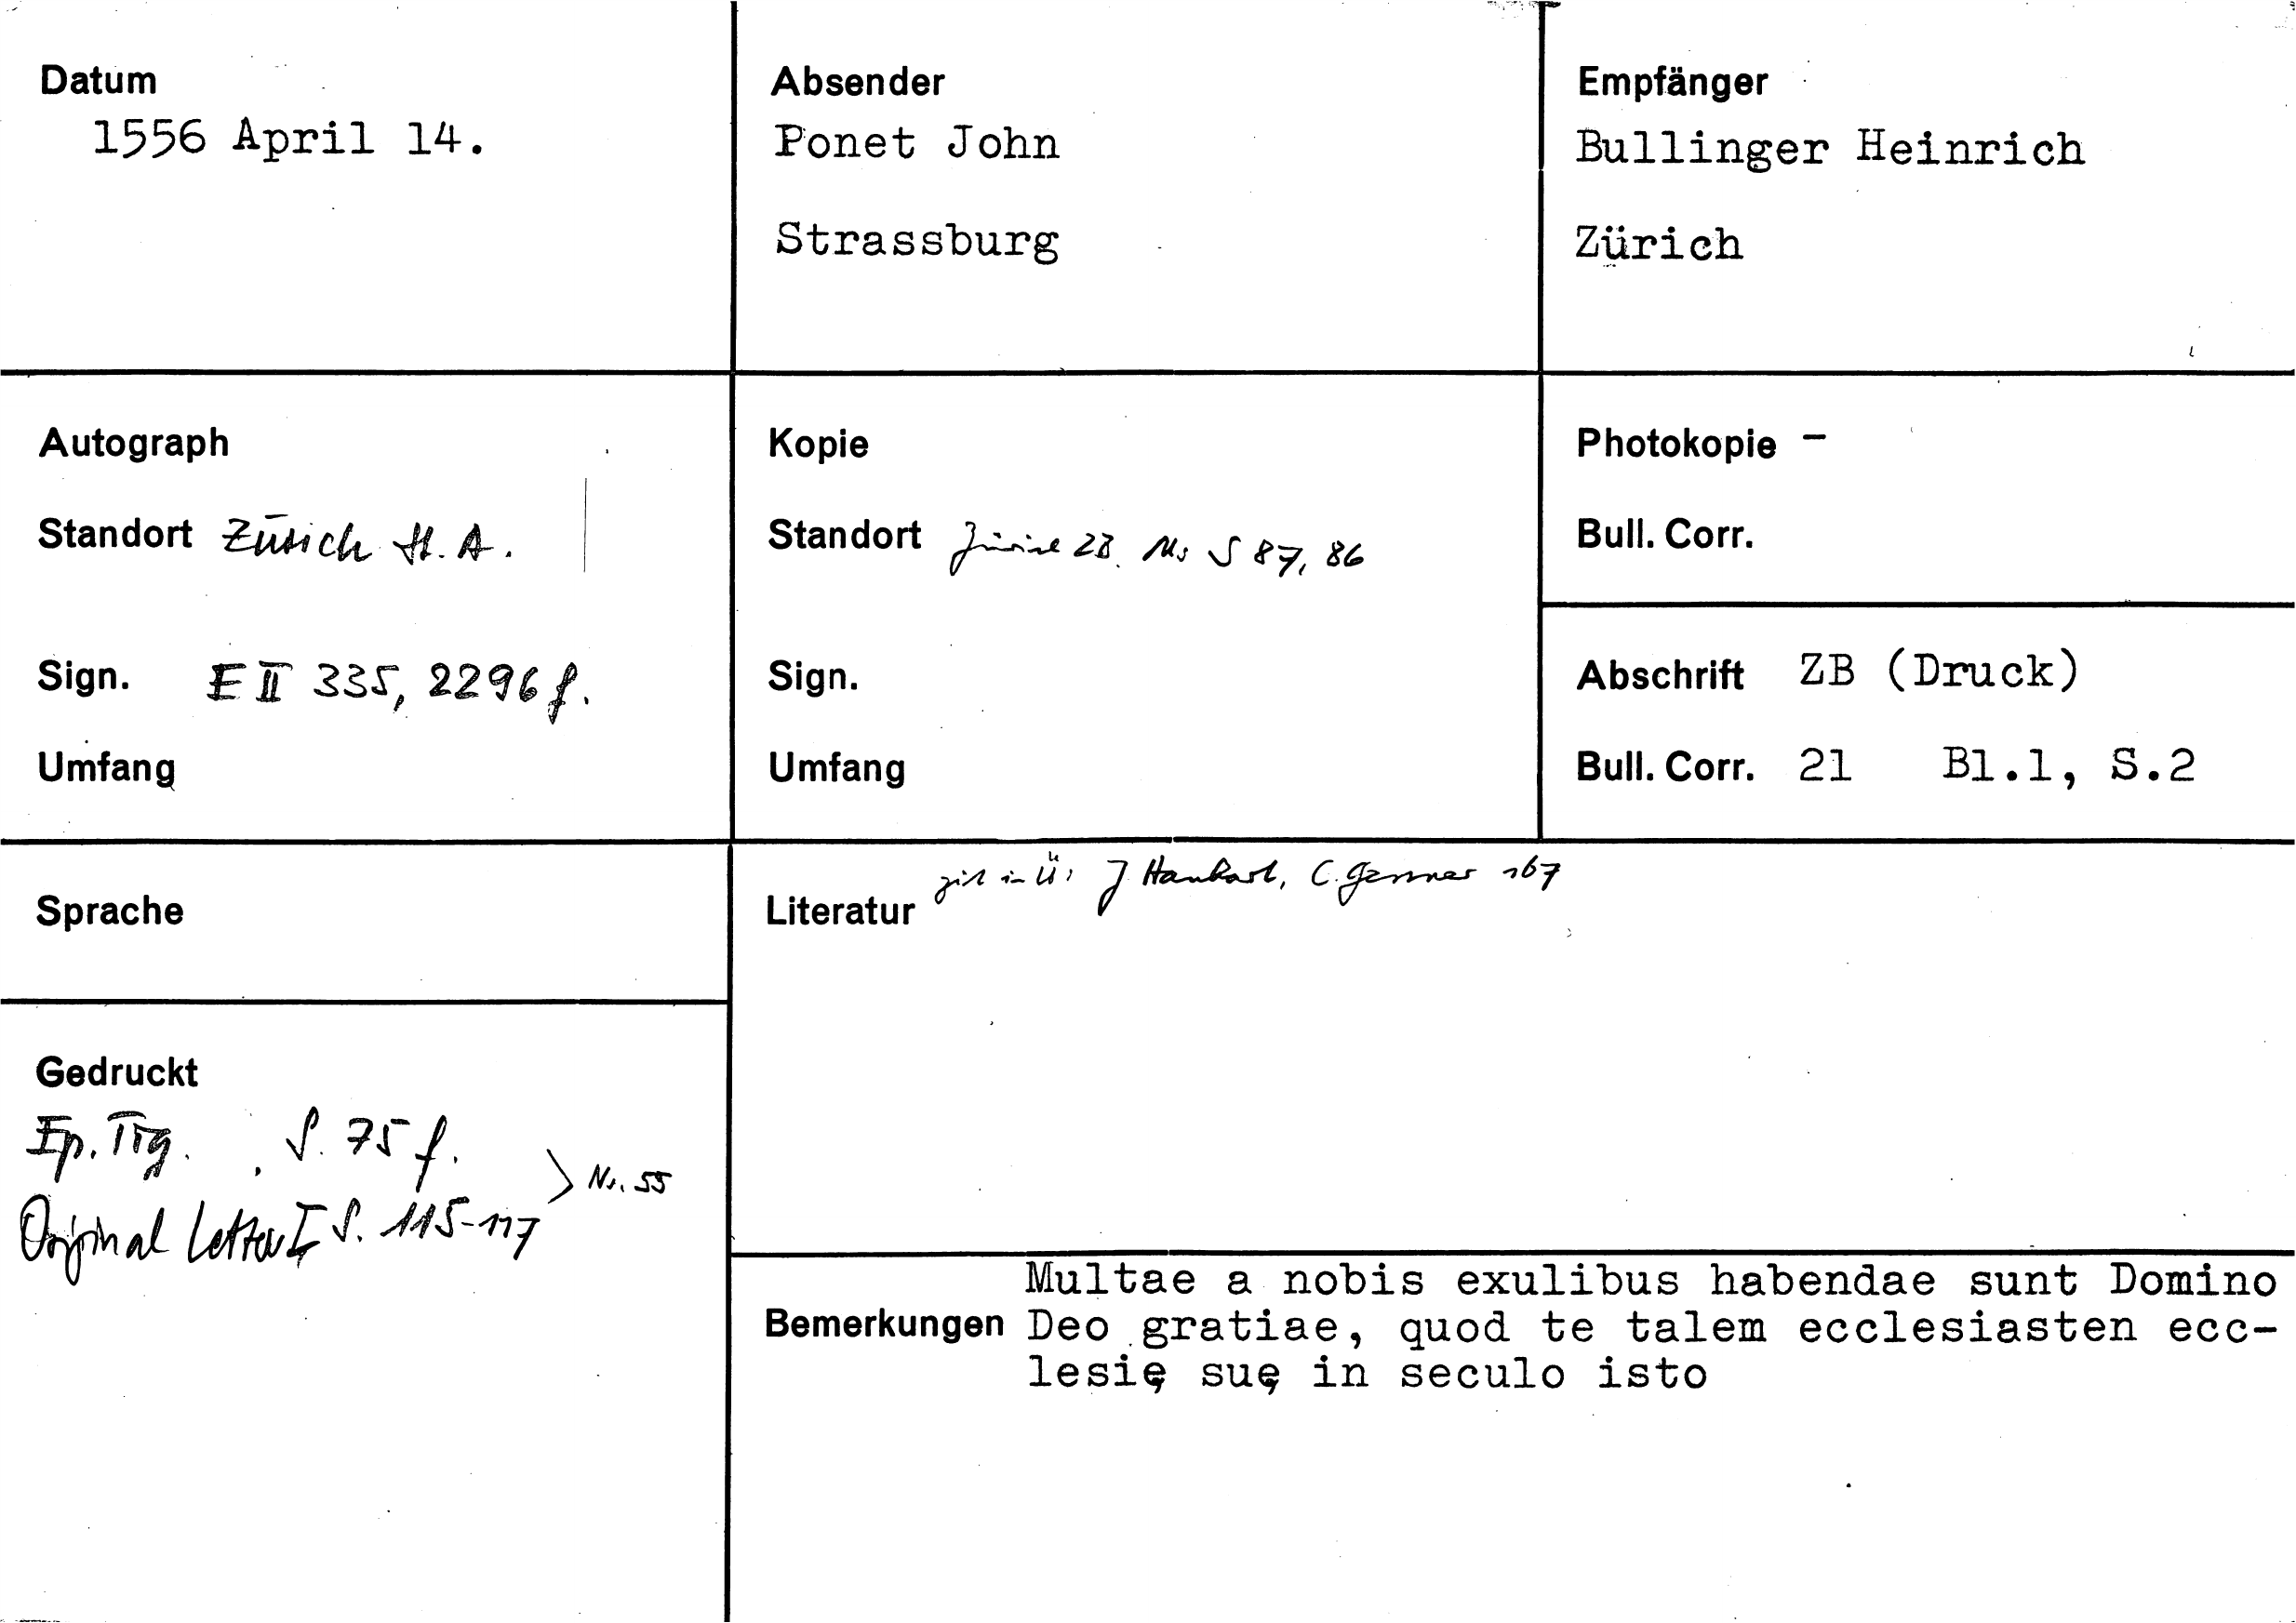 Datum
1556 April 14.
Absender
Ponet John
Strassburg
Empfänger
Bullinger Heinrich
Zürich
Autograph
Standort Zürich St. A.
Sign. E II 335, 2296 f.
Umfang
Kopie
Standort Zürich ZB. Ms S 87, 86
Sign.
Umfang
Photokopie -
Bull. Corr.
Abschrift ZB (Druck)
Bull. Corr. 21 Bl.1, S.2
Sprache
Gedruckt
Ep. Tig. S. 75 f.
Original Letters I S. 115-117
> Nr. 55
Literatur zit in Ü: J Hanhart, C. Gessner 167
Bemerkungen
Multae a nobis exulibus habendae sunt Domino
Deo gratiae, quod te talem ecclesiasten ecc-
lesię suę in seculo isto